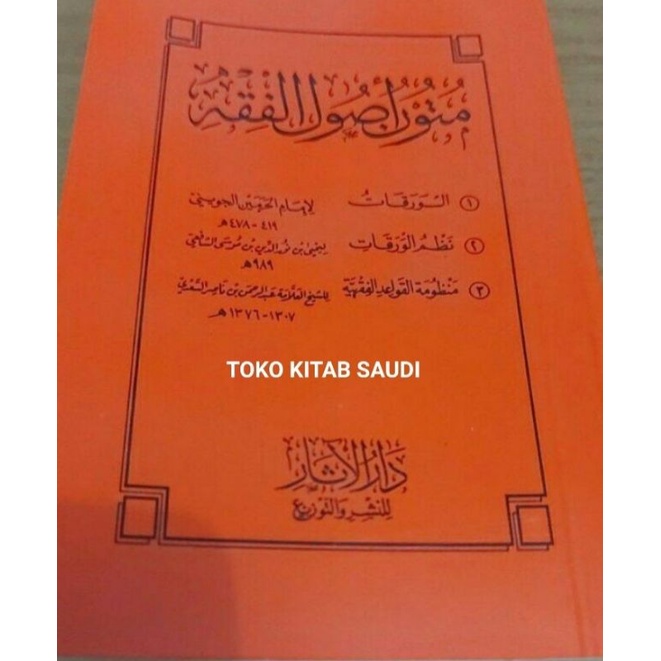 متون أصول الفقه
١ الورقات لإمام الحرمين الجويني
٤١٩ - ٤٧٨ هـ
٢ نظم الورقات ليحيى بن نور الدين بن موسى الشافعي
٩٨٩ هـ
٣ منظومة القواعد الفقهية للشيخ العلامة عبد الرحمن بن ناصر السعدي
١٣٠٧ - ١٣٧٦ هـ
TOKO KITAB SAUDI
دار الآثار
للنشر والتوزيع